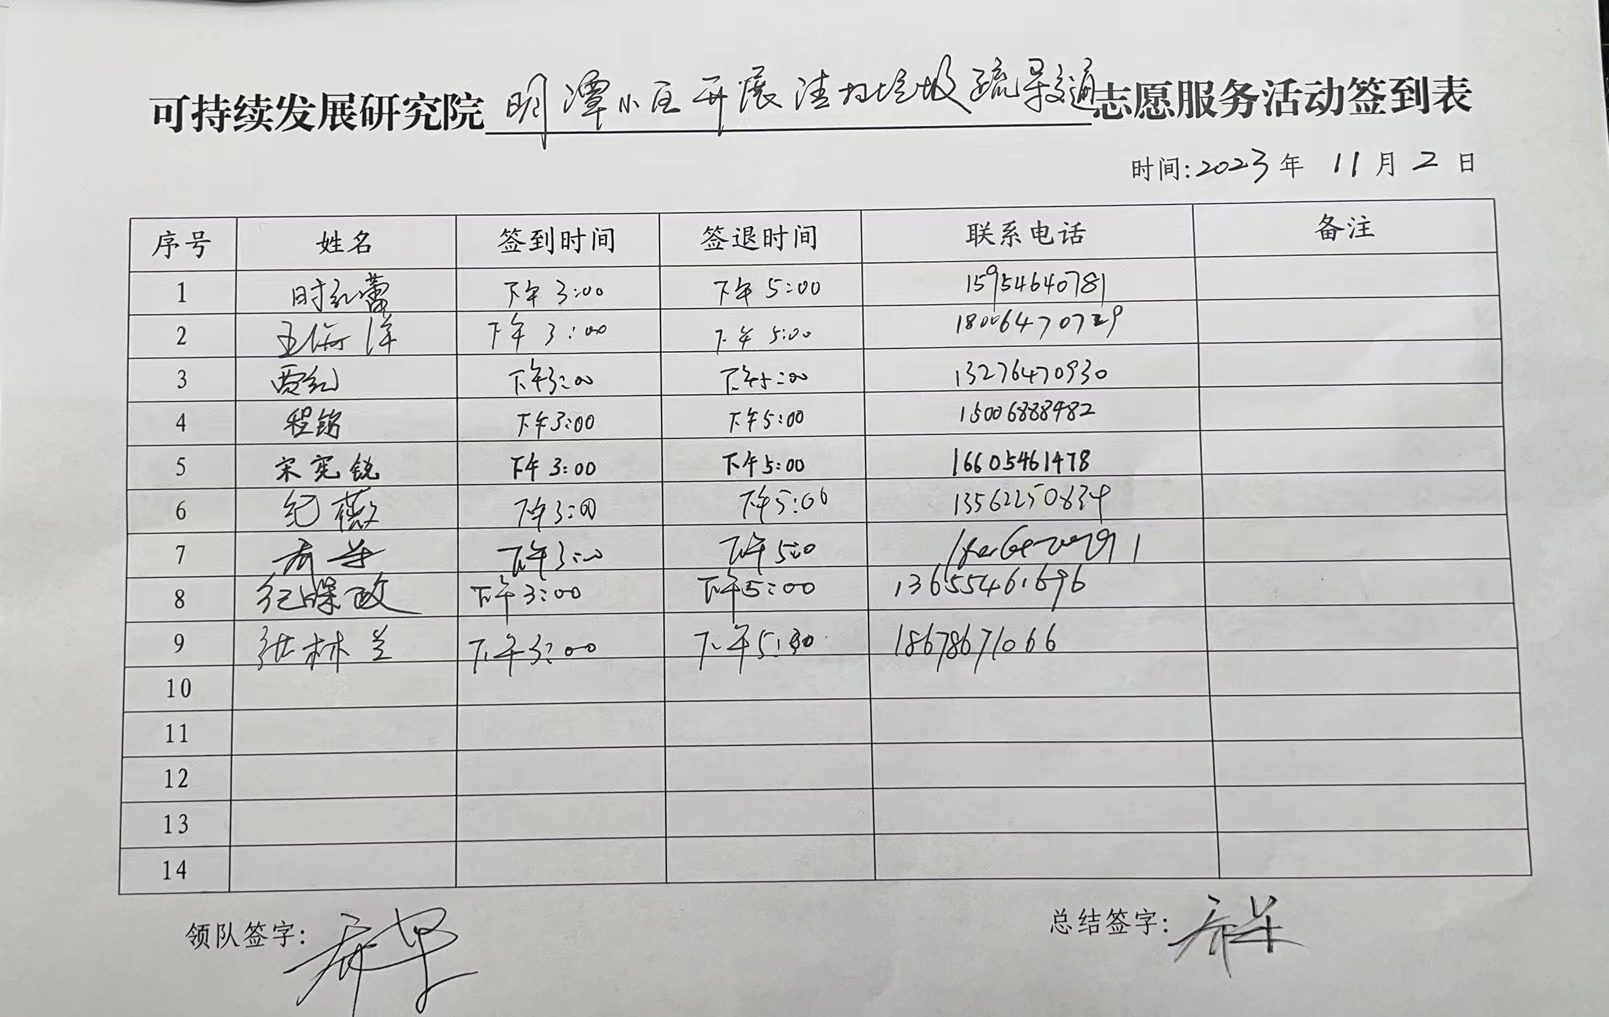 可持续发展研究院明潭小区开展清扫垃圾疏导交通志愿服务活动签到表
时间:2023年 11月 2 日
序号 姓名 签到时间 签退时间 联系电话 备注
1 时红蕾 下午3:00 下午5:00 15954640781
2 王海洋 下午3:00 下午5:00 18006470729
3 贾红 下午3:00 下午5:00 13276470930
4 程铭 下午3:00 下午5:00 15006888482
5 宋宪锐 下午3:00 下午5:00 16605461478
6 纪薇 下午3:00 下午5:00 13562250834
7 下午3:00 下午5:00
8 纪 政 下午3:00 下午5:00 13655461696
9 张林兰 下午3:00 下午5:30 18678671066
10
11
12
13
14
领队签字:
总结签字: